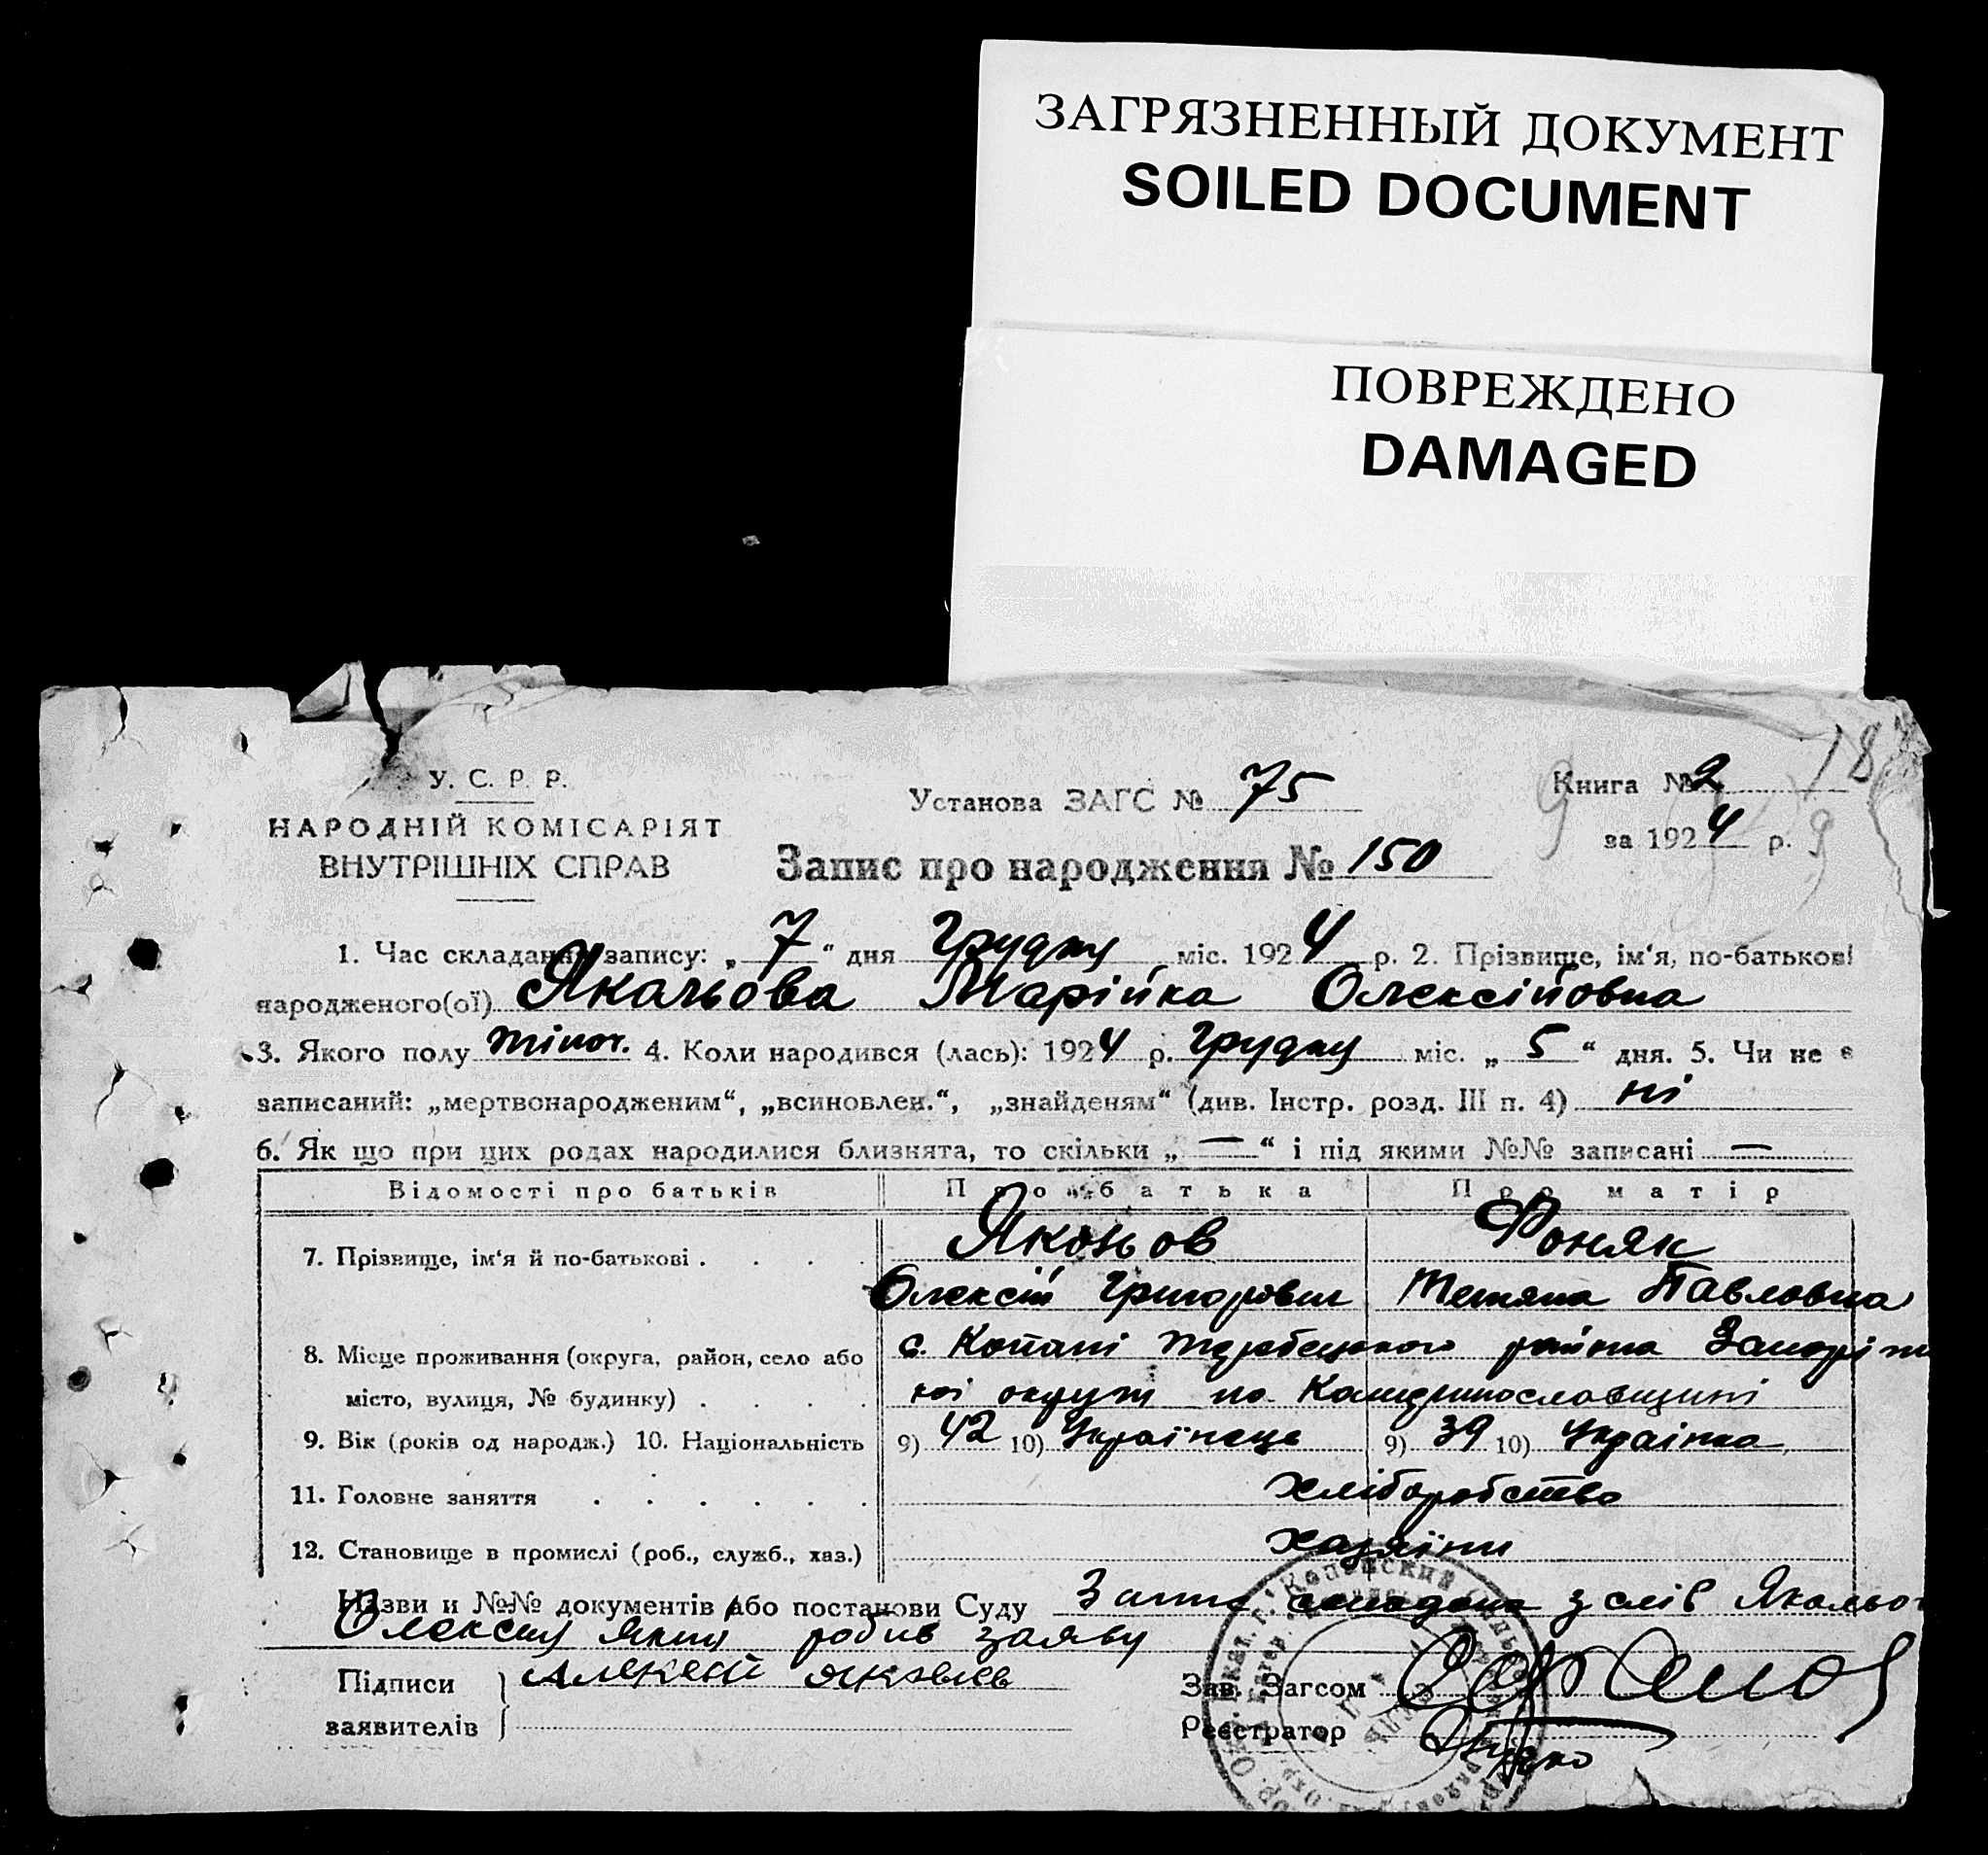 ЗАГРЯЗНЕННЫЙ ДОКУМЕНТ
SOILED DOCUMENT
ПОВРЕЖДЕНО
DAMAGED
187
У. С. Р. Р.
НАРОДНІЙ КОМІСАРІЯТ
ВНУТРІШНІХ СПРАВ
Установа ЗАГС № 75
Книга № 2
за 1924 р.
Запис про народження № 150
1. Час складання запису: „ 7 “ дня Грудня міс. 1924 р. 2. Прізвище, ім‘я, по-батькові
народженого(ої) Якальова Марійка Олексійовна
3. Якого полу жіноч. 4. Коли народився (лась): 1924 р. Грудня міс. „ 5 “ дня. 5. Чи не є
записаний: „мертвонародженим“, „всиновлен.“, „знайденям“ (див. Інстр. розд. III п. 4) ні
6. Як що при цих родах народилися близнята, то скільки „ — “ і під якими №№ записані —
Відомості про батьків Про батька Про матір
7. Прізвище, ім‘я й по-батькові . . . . Якольов Фоняк
Олексій Григорович Тетяна Павловна
8. Місце проживання (округа, район, село або с. Копані района
місто, вулиця, № будинку) . . . . округи на Катеринославщині
9. Вік (років од народж.) 10. Національність 9) 42 10) Українець 9) 39 10) Українка
11. Головне заняття . . . . . . хліборобство
12. Становище в промислі (роб., служб., хаз.) хазяїни
Назви и №№ документів або постанови Суду складена з слів Якальо
Олексия який робив заяву
Підписи Алексей Яковлев
заявителів
Зав. Загсом
Реєстратор